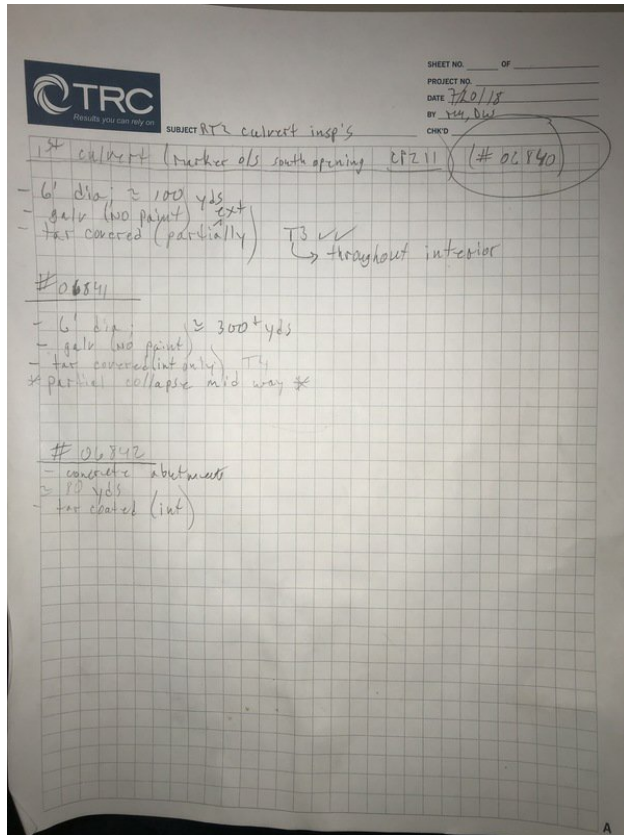 SHEET NO. OF
PROJECT NO.
DATE 7/20/18
BY DW
CHK'D
TRC
Results you can rely on
SUBJECT RT2 culvert insp's
1st culvert (marker o/s south opening CP211 (# 06840)
- 6' dia; ≈ 100 yds
- galv (NO paint) ext
- tar covered (partially) T3 ✓✓
↳ throughout interior
# 06841
- 6' dia; ≈ 300+ yds
- galv (NO paint)
- tar covered (int only) T4
* partial collapse mid way *
# 06842
- concrete abutments
≈ 80 yds
- tar coated (int)
A